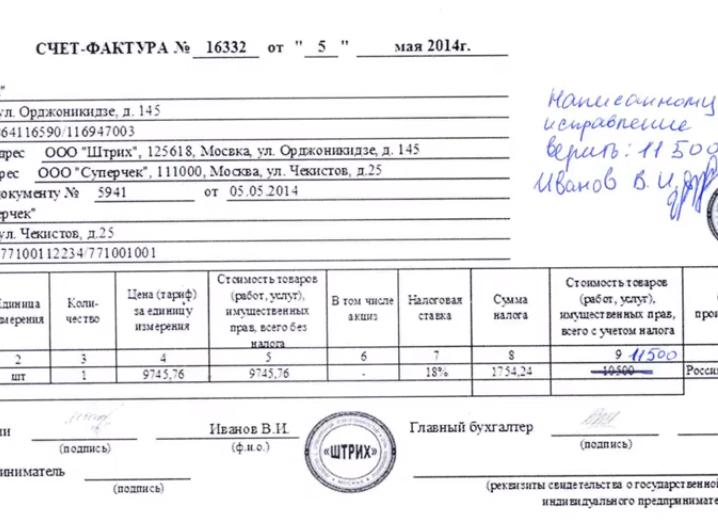 СЧЕТ-ФАКТУРА № 16332 от " 5 " мая 2014г.
"
ул. Орджоникидзе, д. 145
64116590/116947003
дрес ООО "Штрих", 125618, Мосвка, ул. Орджоникидзе, д. 145
рес ООО "Суперчек", 111000, Москва, ул. Чекистов, д.25
окументу № 5941 от 05.05.2014
ерчек"
ул. Чекистов, д.25
77100112234/771001001
Написанному
исправление
верить: 11 500
Иванов В. И.
Единица измерения
Коли-чество
Цена (тариф) за единицу измерения
Стоимость товаров (работ, услуг), имущественных прав, всего без налога
В том числе акциз
Налоговая ставка
Сумма налога
Стоимость товаров (работ, услуг), имущественных прав, всего с учетом налога
прои
2 3 4 5 6 7 8 9 11500
шт 1 9745,76 9745,76 - 18% 1754,24 10500 Росси
ии Иванов В.И. «ШТРИХ» Главный бухгалтер
(подпись) (ф.и.о.) (подпись)
риниматель
(подпись)
(реквизиты свидетельства о государственной
индивидуального предпринимате